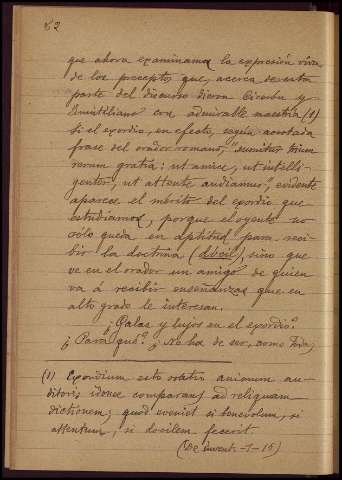 62
que ahora examinamos la expresión viva
de los preceptos que, acerca de esta
parte del discurso dieron Cicerón y
Quintiliano con admirable maestría (1)
Si el exordio, en efecto, según acertada
frase del orador romano, "sumitur trium
rerum gratia: ut amice, ut intelli-
genter, ut attente audiamur", evidente
aparece el mérito del exordio que
estudiamos, porque el oyente no
sólo queda en aptitud para reci-
bir la doctrina (dócil), sino que
ve en el orador un amigo de quien
va á recibir enseñanzas que en
alto grado le interesan.
¿Galas y lujos en el exordio?
¿Para qué? ¿No ha de ser, como
(1) Exordium est oratio animum au-
ditoris idonee comparans ad reliquam
dictionem; quod eveniet si benevolum, si
attentum, si docilem fecerit
(De Invent. -1-15)